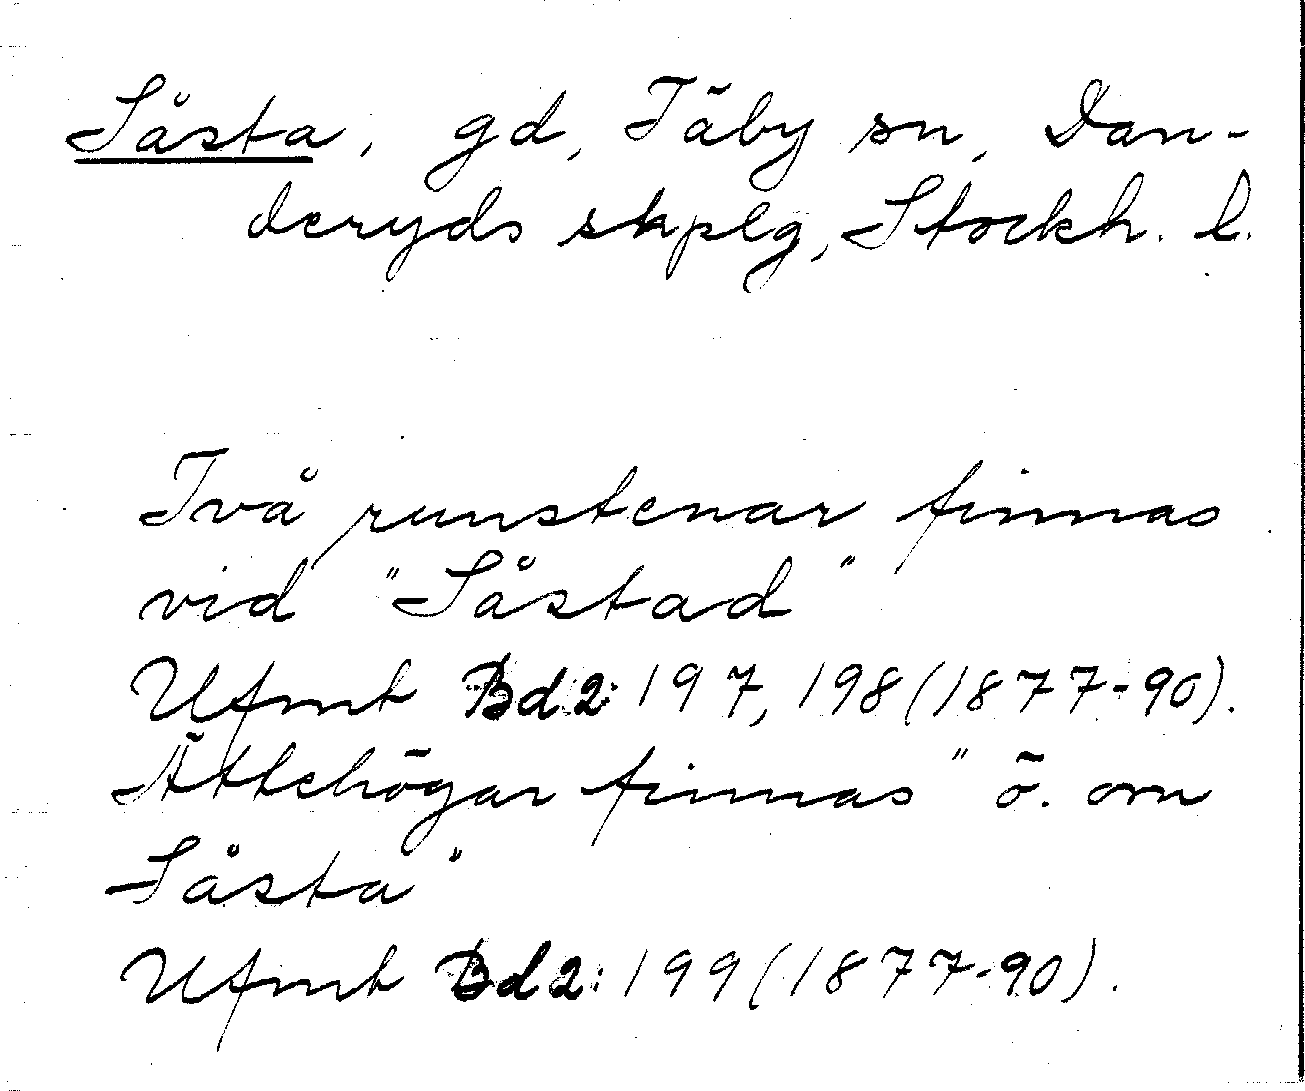 Såsta, gd, Täby sn, Dan-
deryds skplg, Stockh. l.
Två runstenar finnas
vid "Såstad"
Ufmt Bd 2: 197, 198 (1877-90).
Ättehögar finnas "ö. om
Såsta"
Ufmt Bd 2: 199 (1877-90).